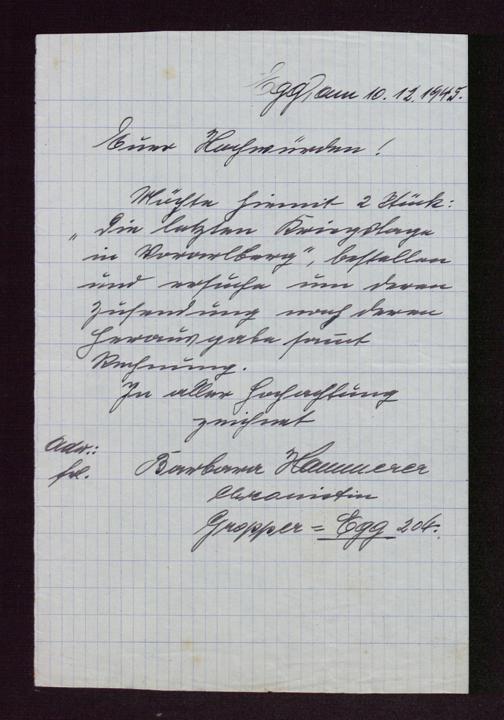 Egg, am 10.12.1945.
Euer Hochwürden!
Möchte hiemit 2 Stück:
"Die letzten Kriegstage
in Vorarlberg", bestellen
und ersuche um deren
Zusendung nach deren
Herausgabe samt
Rechnung.
In aller Hochachtung
zeichnet
Adr.:
Frl. Barbara Hammerer
Gropper = Egg 204.